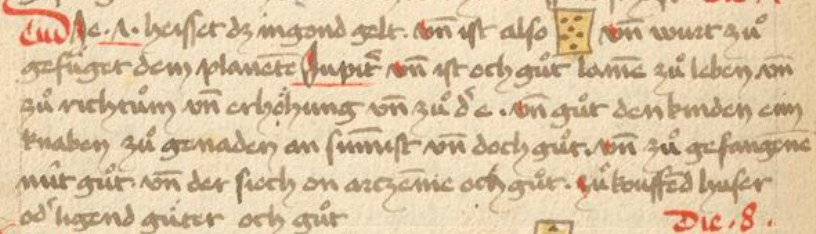 Die .7. heisset dz ingond gelt. vn̄ ist also vn̄ wurt zů
gefüget dem planetē Jupit̾ vn̄ ist och gůt lamē zů leben vm̄
zů richtům vn̄ erhöhung vn̄ zů d̾ e. vn̄ gůt den kinden ein
knaben zů genaden an sinnist vn̄ doch gůt. vn̄ zů gefangene
nüt gůt. vn̄ der siech on arczenie och gůt. zů kouffēd huser
od̾ ligend gůter och gůt
Die .8.